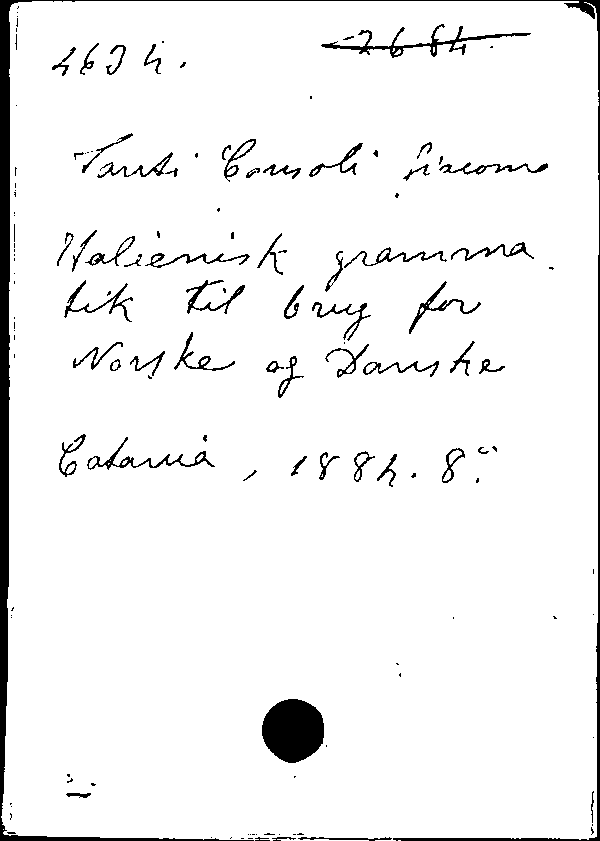 463 h.
2684.
Santi Consoli Giacomo
Italienisk gramma
tik til brug for
Norske og Danske
Catania, 1884. 8°.